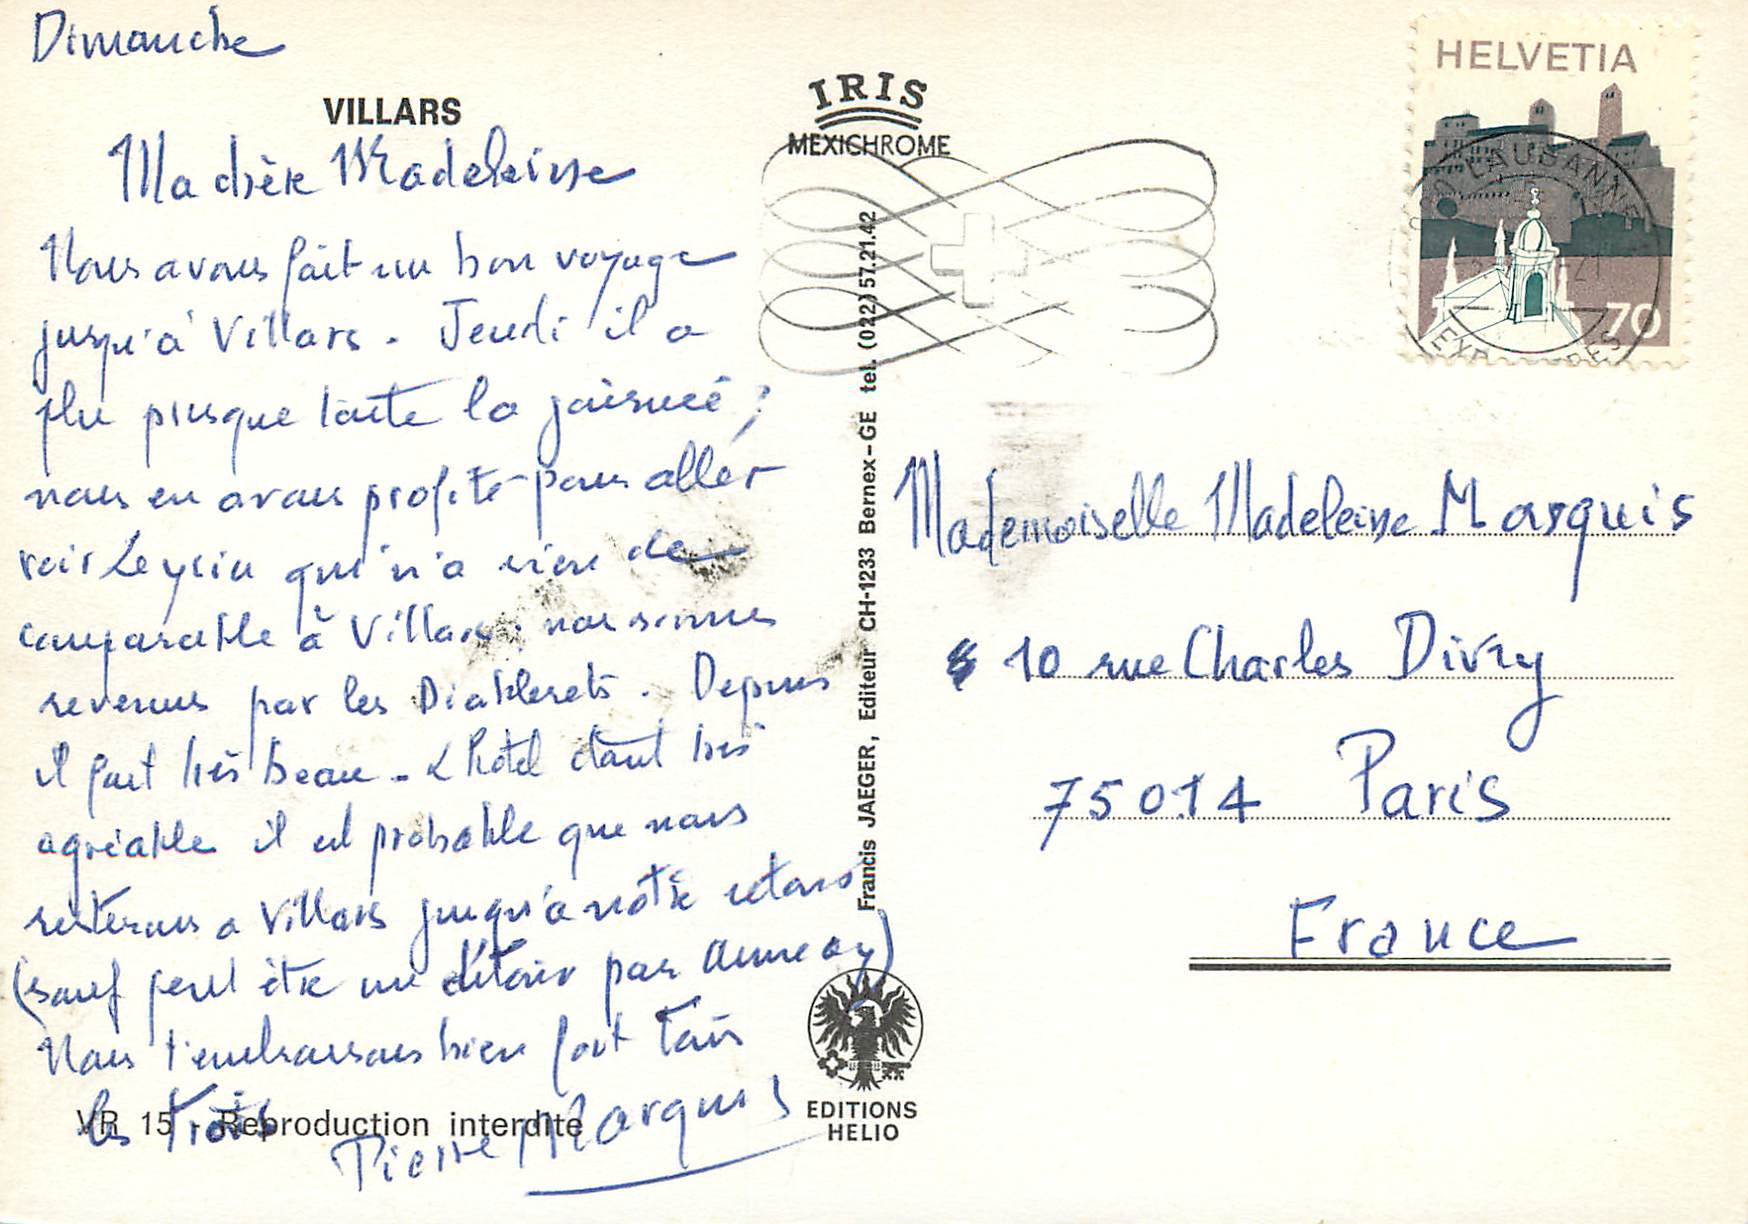 Dimanche
VILLARS
Ma chère Madeleine
Nous avons fait un bon voyage
jusqu'à Villars. Jeudi il a
plu presque toute la journée ;
nous en avons profité pour aller
voir Leysin qui n'a rien de
comparable à Villars ; nous sommes
revenus par les Diablerets. Depuis
il fait très beau - L'hôtel étant très
agréable il est probable que nous
resterons a Villars jusqu'à notre retour
(sauf peut être un détour par Annecy)
Nous t'embrassons bien fort tous
les trois
Pierre Marquis
VR 15 - Reproduction interdite
IRIS
MEXICHROME
Francis JAEGER, Editeur CH-1233 Bernex-GE tel. (022) 57.21.42
EDITIONS
HELIO
HELVETIA
70
LAUSANNE
Mademoiselle Madeleine Marquis
10 rue Charles Divry
75014 Paris
France